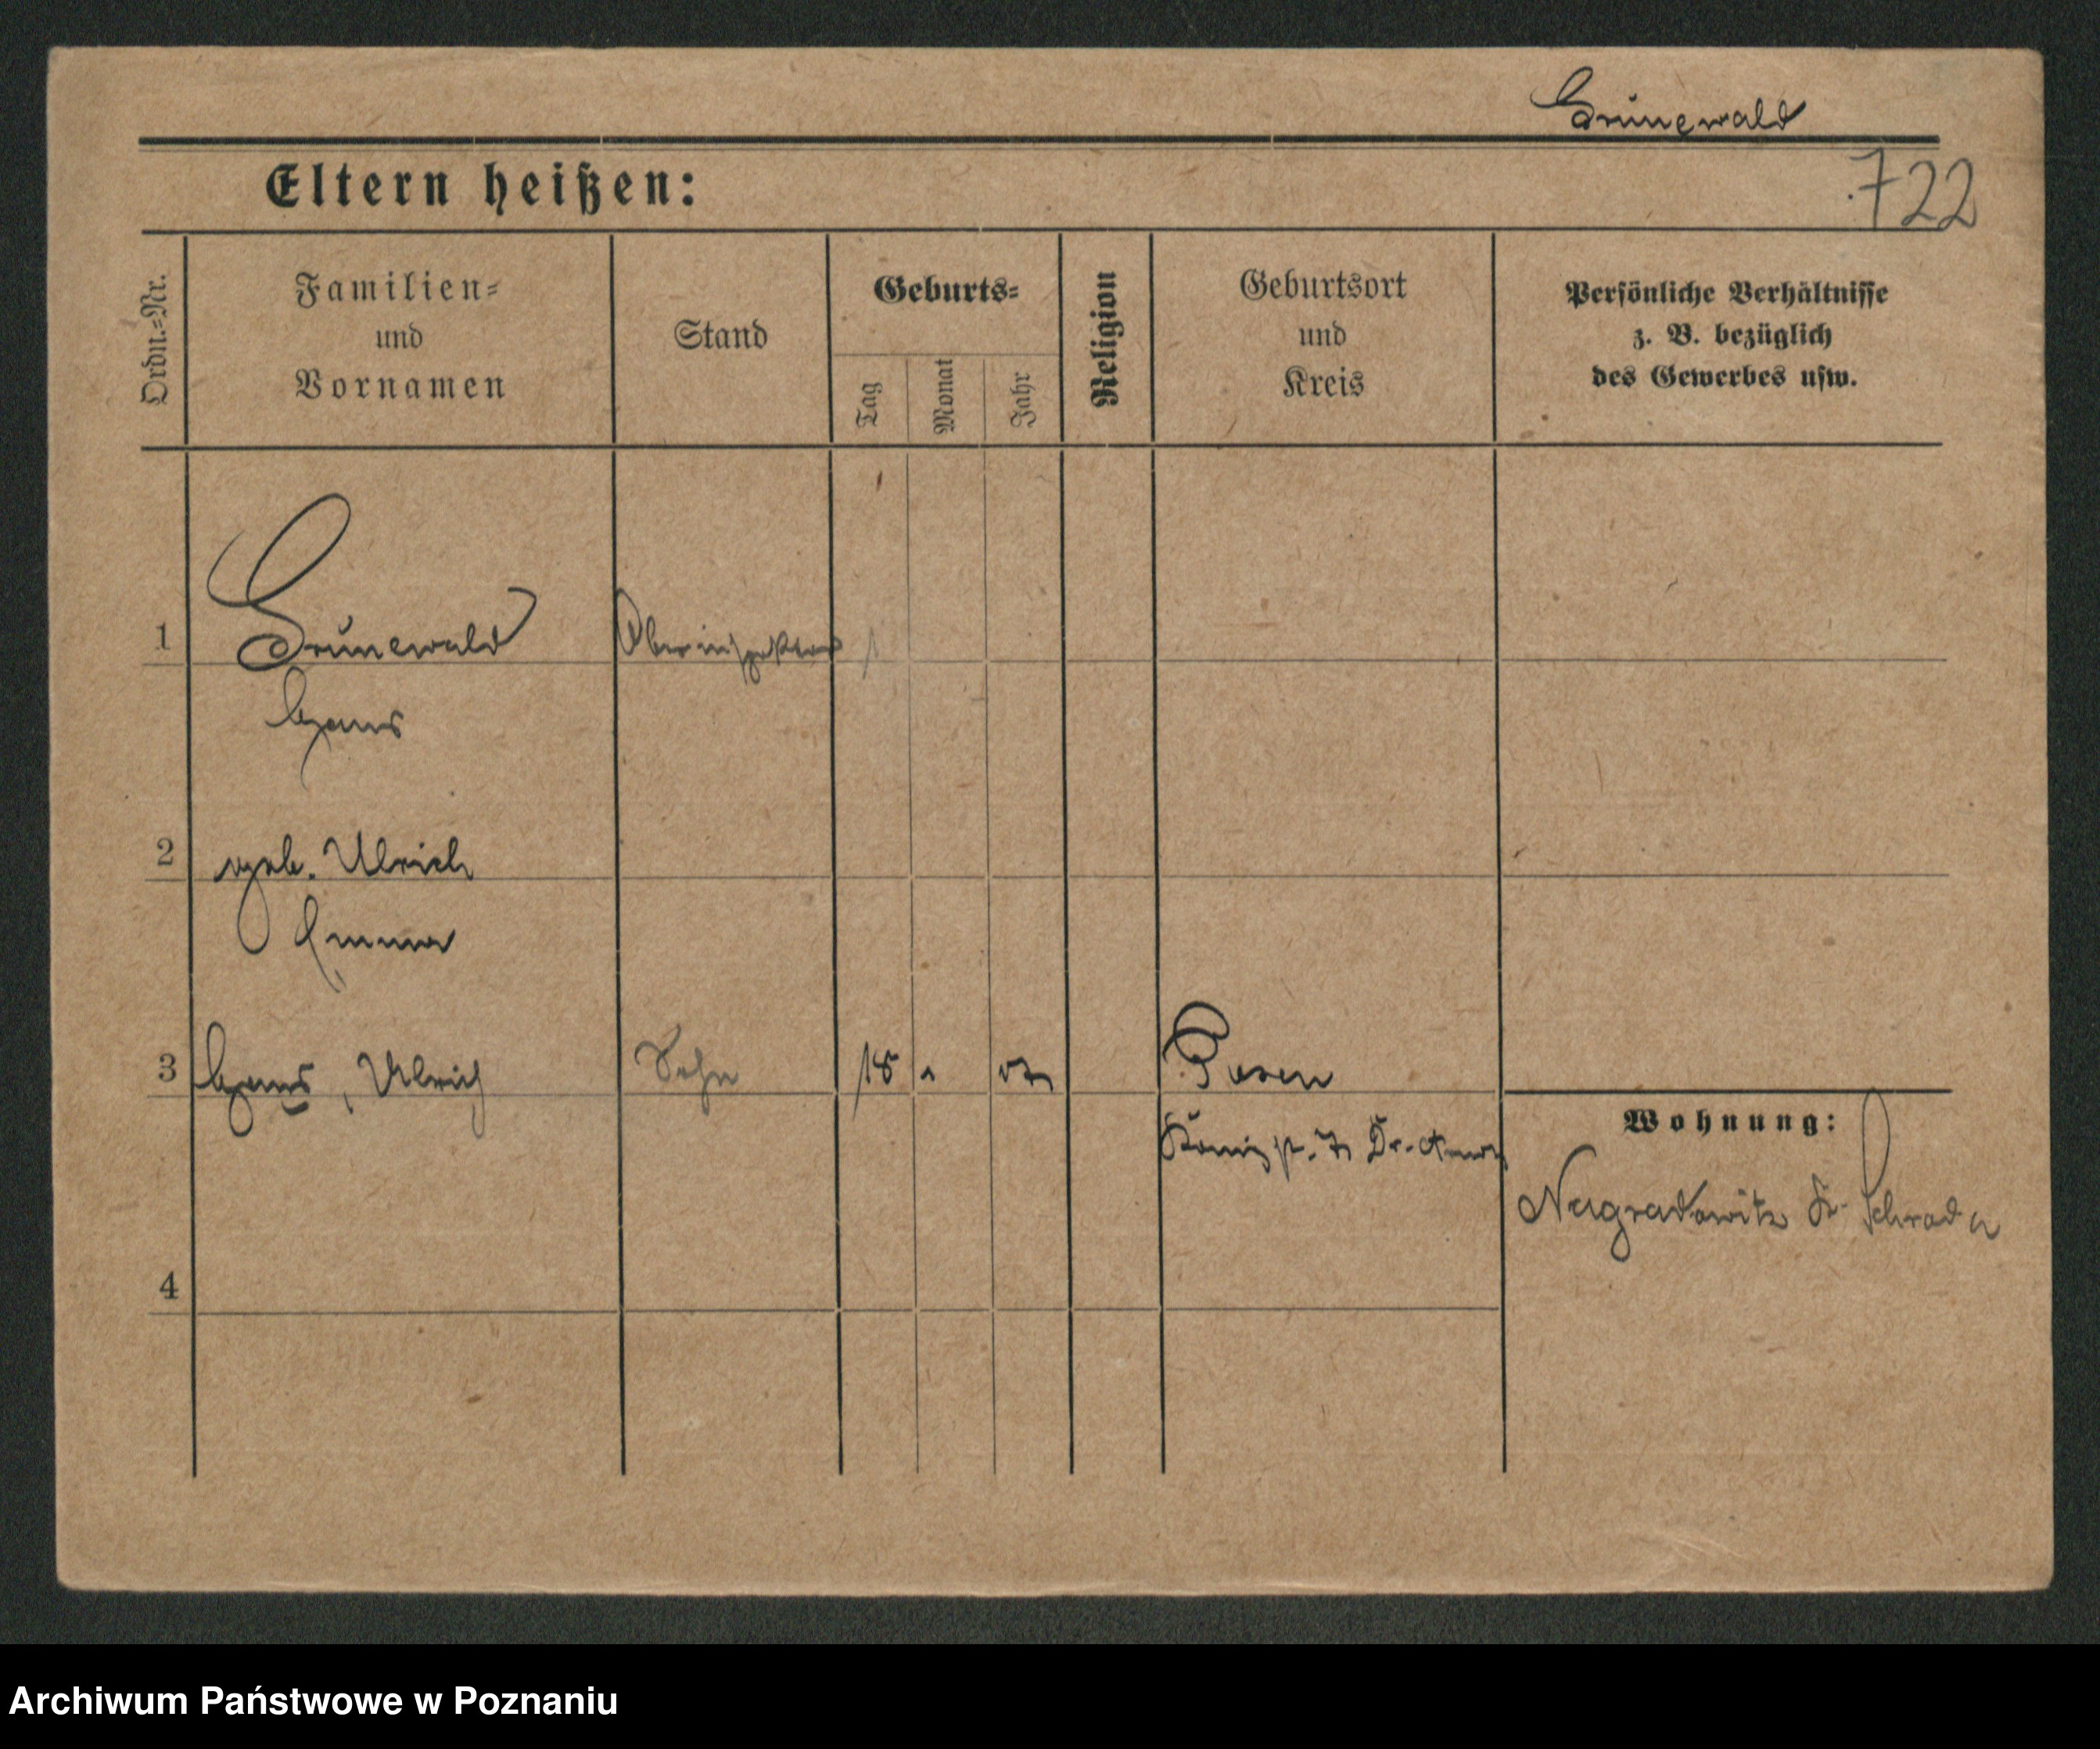 Grünewald
Eltern heißen:
722
Ordn.-Nr.
Familien-
und
Vornamen
Stand
Geburts-
Tag
Monat
Jahr
Religion
Geburtsort
und
Kreis
Persönliche Verhältnisse
z. B. bezüglich
des Gewerbes usw.
1
Grünewald
Oberinspektor
Hans
2
geb. Ulrich
Emma
3
Hans, Ulrich
Sohn
18
Posen
Königspl. Dr.
Wohnung:
Nagradowitz Kr. Schroda
4
Archiwum Państwowe w Poznaniu